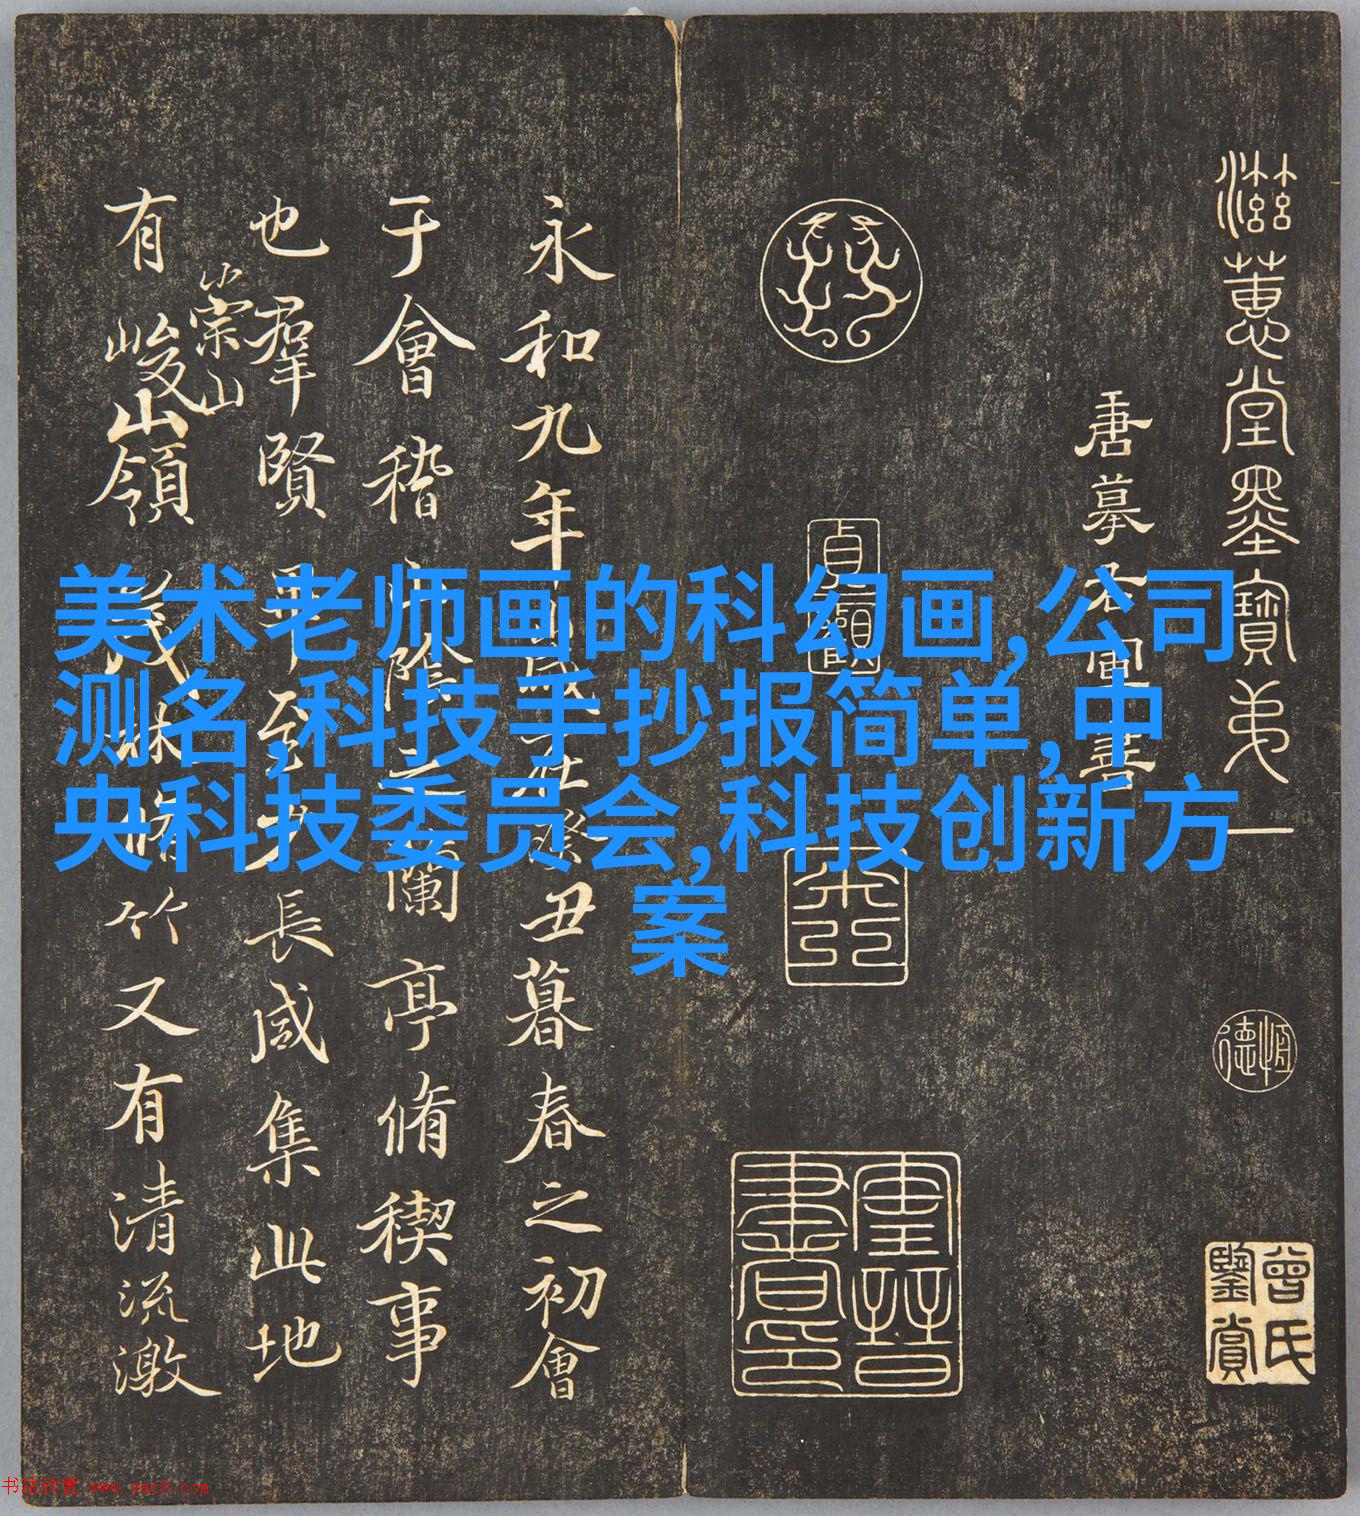 美术老师画的科幻画,公司
测名,科技手抄报简单,中
央科技委员会,科技创新方
案
滋蕙堂墨寶弟一
唐摹右軍
恒德
曾氏鑒賞
貞觀
永和九年歲在癸丑暮春之初會
于會稽山陰之蘭亭脩稧事
也羣賢畢至少長咸集此地
有崇山峻嶺茂林脩竹又有清流激
书法欣赏 www.yac8.com